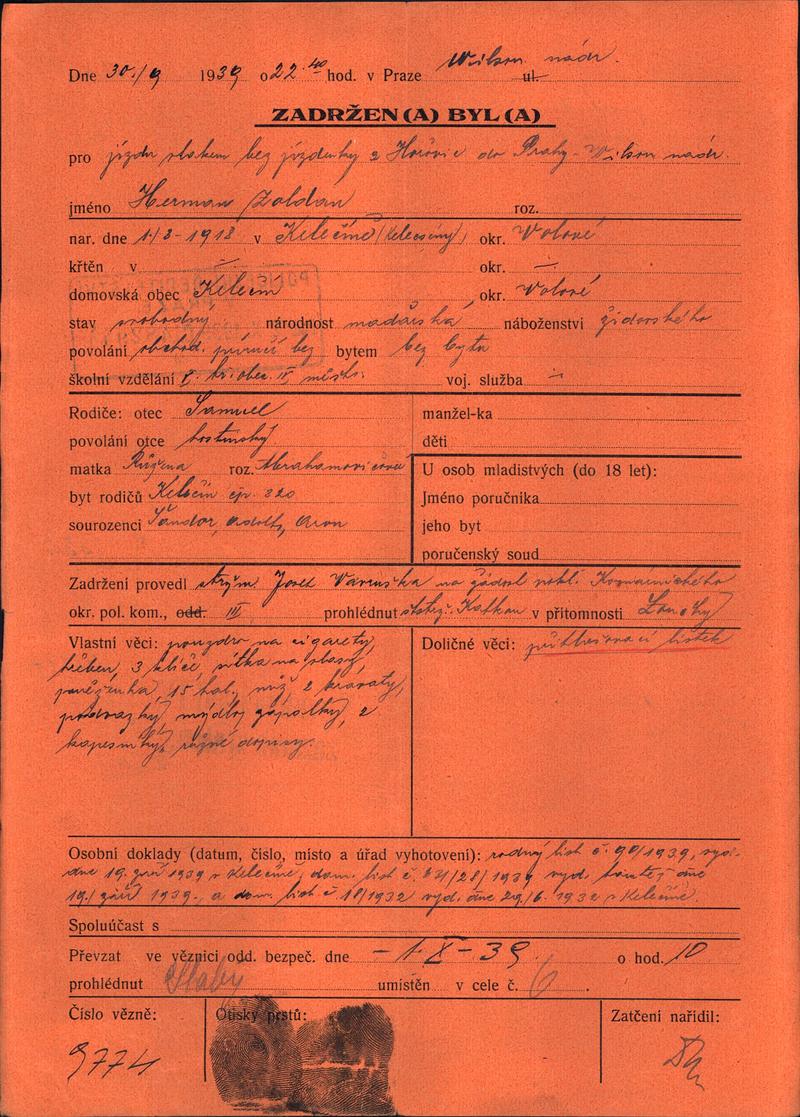 Dne 30./9 1939 o 22.40 hod. v Praze Wilson nádr. ul.
ZADRŽEN(A) BYL(A)
pro jízdu vlakem bez jízdenky z Hořovic do Prahy-Wilson nádr.
jméno Herman Zoldan roz.
nar. dne 1./3-1918 v Kelečíně (Kelecsény) okr. Volové
křtěn v — okr. —
domovská obec Kelečín okr. Volové
stav svobodný národnost maďarská náboženství židovského
povolání obchod. příručí bez bytem bez bytu
školní vzdělání tř. obec. měšť. voj. služba —
Rodiče: otec Samuel manžel-ka
povolání otce hostinský děti
matka Růžena roz. Abrahamovičová U osob mladistvých (do 18 let):
byt rodičů Kelečín čp. 320 Jméno poručníka
sourozenci Šandor, Adolf, Aron jeho byt
poručenský soud
Zadržení provedl Josef Vavruška na žádost
okr. pol. kom., odd. III prohlédnut v přítomnosti
Vlastní věci: pouzdro na cigarety, Doličné věci:
hřeben, 3 klíče, síťka na vlasy, lístek
peněženka, 15 hal., nůž, 2 kravaty,
podvazky, mýdlo, zápalky, 2
kapesníky, různé dopisy.
Osobní doklady (datum, číslo, místo a úřad vyhotovení): rodný list č. 90/1939, vyd.
dne 19. září 1939 v Kelečíně, dom. list č. vyd. tamtéž dne
19./září 1939, a dom. list č 18/1932 vyd. dne 29./6. 1932 v Kelečíně.
Spoluúčast s
Převzat ve věznici odd. bezpeč. dne -1-X-39. o hod. 10
prohlédnut Slabý umístěn v cele č. 6.
Číslo vězně: Otisky prstů: Zatčení nařídil:
9774